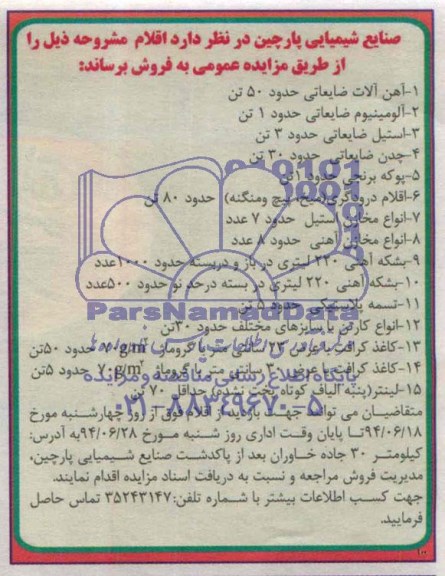 صنایع شیمیایی پارچین در نظر دارد اقلام مشروحه ذیل را
از طریق مزایده عمومی به فروش برساند:
۱-آهن آلات ضایعاتی حدود ۵۰ تن
۲-آلومینیوم ضایعاتی حدود ۱ تن
۳-استیل ضایعاتی حدود ۳ تن
۴-چدن ضایعاتی حدود ۳۰ تن
۵-پوکه برنجی حدود ۱تن
۶-اقلام درودگری(میخ، پیچ ومنگنه) حدود ۸۰ تن
۷-انواع مخازن استیل حدود ۷ عدد
۸-انواع مخازن آهنی حدود ۸ عدد
۹-بشکه آهنی ۲۲۰ لیتری در باز و دربسته حدود ۱۰۰۰عدد
۱۰-بشکه آهنی ۲۲۰ لیتری در بسته درحد نو حدود ۵۰۰عدد
۱۱-تسمه پلاستیکی حدود ۵ تن
۱۲-انواع کارتن با سایزهای مختلف حدود ۳۰تن
۱۳-کاغذ کرافت با عرض ۲۳ سانتی متر با گروماژ ۷۰g/m² حدود ۵۰تن
۱۴-کاغذ کرافت با عرض ۳۰ سانتی متر با گروماژ ۷۰g/m² حدود ۵تن
۱۵-لینتر(پنبه الیاف کوتاه پخت نشده) حداقل ۷۰ تن
متقاضیان می توانند جهت بازدید از اقلام فوق از روز چهارشنبه مورخ
۹۴/۰۶/۱۸تا پایان وقت اداری روز شنبه مورخ ۹۴/۰۶/۲۸به آدرس:
کیلومتر ۳۰ جاده خاوران بعد از پاکدشت صنایع شیمیایی پارچین،
مدیریت فروش مراجعه و نسبت به دریافت اسناد مزایده اقدام نمایند.
جهت کسب اطلاعات بیشتر با شماره تلفن:۳۵۲۴۳۱۴۷ تماس حاصل
فرمایید.
ParsNamadData
پایگاه اطلاع رسانی مناقصه و مزایده
۰۲۱-۸۸۳۴۹۶۷۰-۵